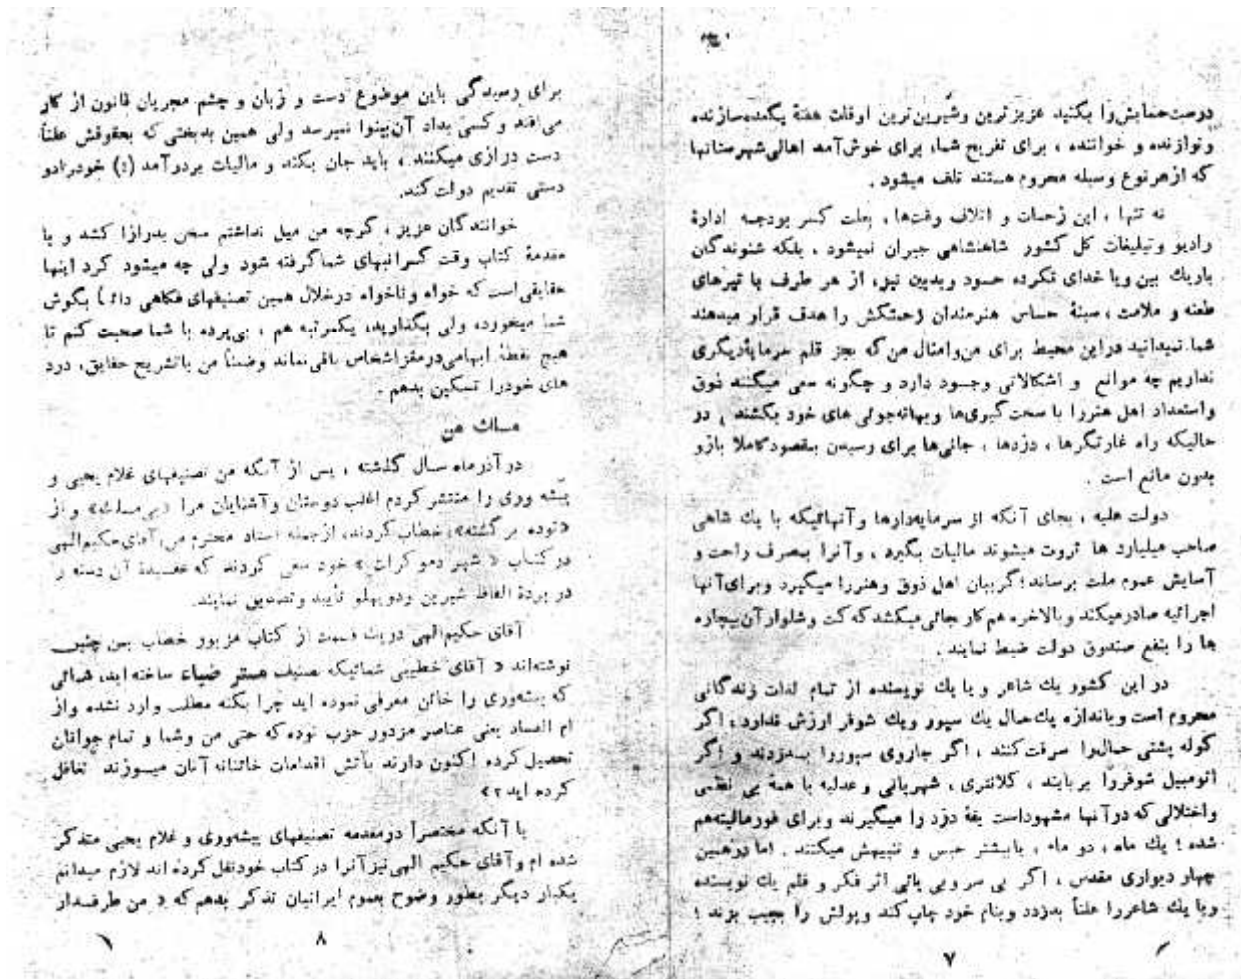 درصت‌حمایش‌را بکنید عزیزترین وشیرین‌ترین اوقات هفتهٔ یکعده‌سازنده
ونوازنده و خواننده ، برای تفریح شما، برای خوش‌آمد اهالی‌شهرستانها
که ازهرنوع وسیله محروم هستند تلف میشود .
نه تنها ، این زحمات و اتلاف وقت‌ها ، بعلت کسر بودجه ادارهٔ
رادیو وتبلیغات کل کشور شاهنشاهی جبران نمیشود ، بلکه شنوندگان
باریك بین ویا خدای نکرده حسود وبدبین نیز، از هر طرف با تیرهای
طعنه و ملامت ، سینهٔ حساس هنرمندان زحمتکش را هدف قرار میدهند
شما نمیدانید دراین محیط برای من‌وامثال من‌که بجز قلم سرمایهٔ‌دیگری
نداریم چه موانع و اشکالاتی وجود دارد و چگونه سعی میکنند ذوق
واستعداد اهل هنررا با سخت‌گیری‌ها وبهانه‌جوئی های خود بکشند ، در
حالیکه راه غارتگرها ، دزدها ، جانی‌ها برای رسیدن بمقصود کاملا بازو
بدون مانع است .
دولت علیه ، بجای آنکه از سرمایه‌دارها وآنهائیکه با یك شاهی
صاحب میلیارد ها ثروت میشوند مالیات بگیرد ، وآنرا بمصرف راحت و
آسایش عموم ملت برساند؛ گریبان اهل ذوق وهنررا میگیرد وبرای‌آنها
اجرائیه صادرمیکند وبالاخره هم‌کار بجائی‌میکشد که کت وشلوار آن‌بیچاره
ها را بنفع صندوق دولت ضبط نمایند .
در این کشور یك شاعر و یا یك نویسنده از تمام لذات زندگانی
محروم است وباندازه یك‌حمال یك سپور ویك شوفر ارزش ندارد ، اگر
کوله پشتی حمال‌را سرقت کنند ، اگر جاروی سپوررا بدزدند و اگر
اتومبیل شوفررا بربایند ، کلانتری ، شهربانی و عدلیه با همهٔ بی نظمی
واختلالی که درآنها مشهوداست یقهٔ دزد را میگیرند وبرای فورمالیته‌هم
شده ؛ یك ماه ، دو ماه ، یابیشتر حبس و تنبیهش میکنند . اما درهمین
چهار دیواری مقدس ، اگر بی سر وبی پائی اثر فکر و قلم یك نویسنده
ویا یك شاعررا علناً بدزدد وبنام خود چاپ کند وپولش را بجیب بزند ؛
۷
برای رسیدگی باین موضوع دست و زبان و چشم مجریان قانون از کار
می‌افتد و کسی بداد آن‌بینوا نمیرسد ولی همین بدبختی که بحقوقش علناً
دست درازی میکنند ، باید جان بکند و مالیات بردرآمد (!) خودرادو
دستی تقدیم دولت کند.
خوانندگان عزیز ، گرچه من میل نداشتم سخن بدرازا کشد و با
مقدمهٔ کتاب وقت گرانبهای شماگرفته شود ولی چه میشود کرد اینها
حقایقی است که خواه وناخواه درخلال همین تصنیفهای فکاهی دائماً بگوش
شما میخورد، ولی بگذارید، یکمرتبه هم ، بی‌پرده با شما صحبت کنم تا
هیچ نقطهٔ ابهامی‌درمغزاشخاص باقی‌نماند وضمناً من باتشریح حقایق، درد
های خودرا تسکین بدهم .
مسلك من
در آذرماه سال گذشته ، پس از آنکه من تصنیفهای غلام یحیی و
پیشه وری را منتشر کردم اغلب دوستان وآشنایان مرا «بی‌مسلك» و از
«توده برگشته» خطاب کردند، ازجمله استاد محترم من، آقای حکیم‌الهی
در کتاب « شهر دموکرات » خود سعی کردند که عقیدهٔ آن دسته را
در پردهٔ الفاظ شیرین ودوپهلو تأیید وتصدیق نمایند.
آقای حکیم‌الهی دریك قسمت از کتاب مزبور خطاب بمن چنین
نوشته‌اند « آقای خطیبی شمائیکه تصنیف مستر ضیاء ساخته اید، شمائی
که پیشه‌وری را خائن معرفی نموده اید چرا بکنه مطلب وارد نشده واز
ام الفساد یعنی عناصر مزدور حزب توده که حتی من وشما و تمام جوانان
تحصیل کرده اکنون دارند بآتش اقدامات خائنانه آنان میسوزند تغافل
کرده اید ؟»
با آنکه مختصراً درمقدمه تصنیفهای پیشه‌وری و غلام یحیی متذکر
شده ام وآقای حکیم الهی نیزآنرا در کتاب خودنقل کرده اند لازم میدانم
یکبار دیگر بطور وضوح بعموم ایرانیان تذکر بدهم که « من طرفدار
۸